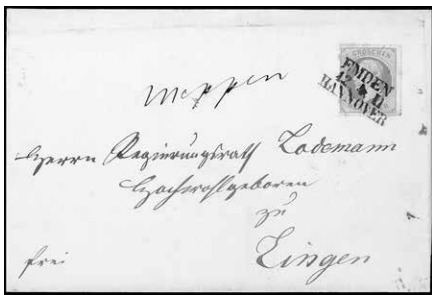 GROSCHEN
EMDEN
HANNOVER
Meppen
Herrn Regierungsrath Lodemann
Hochwohlgeboren
zu
Lingen
frei